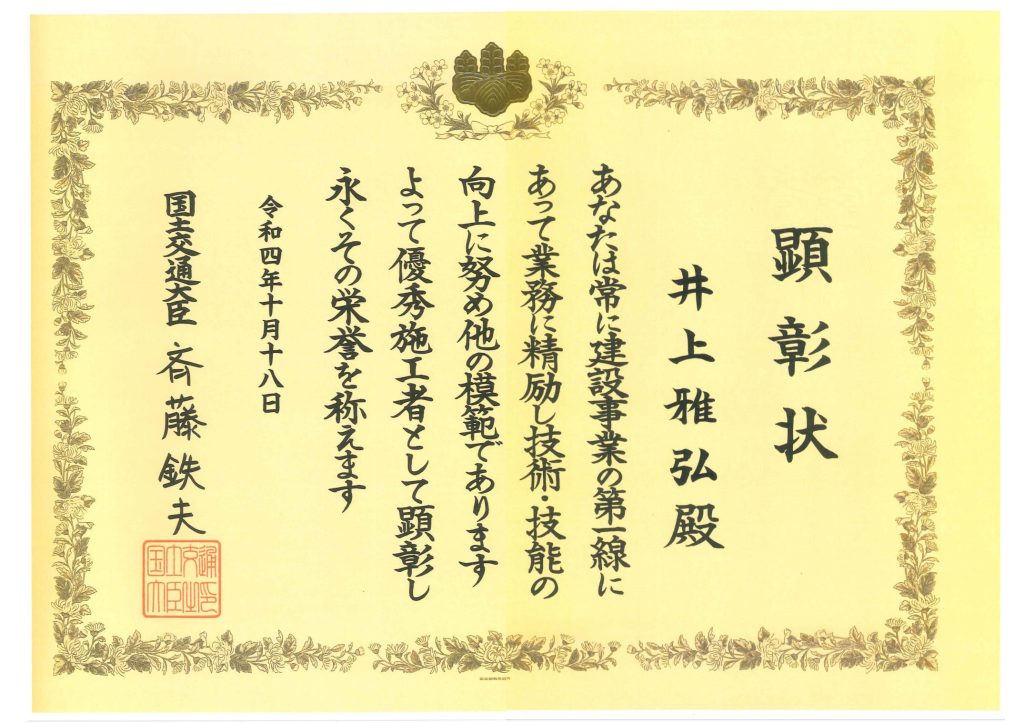 顕彰状
井上雅弘殿
あなたは常に建設事業の第一線に
あって業務に精励し技術・技能の
向上に努め他の模範であります
よって優秀施工者として顕彰し
永くその栄誉を称えます
令和四年十月十八日
国土交通大臣 斉藤鉄夫
国土交通大臣之印